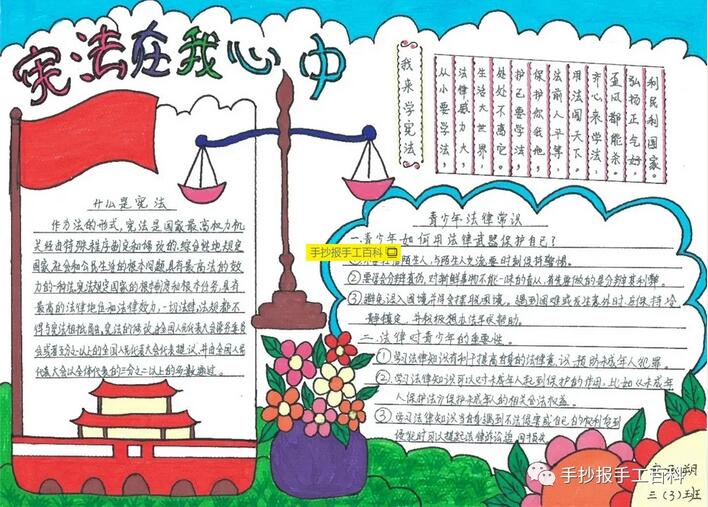 宪法在我心中
我来学宪法
从小要学法,
法律威力大,
生活大世界,
处处不离它。
护己要学法,
保护你我他,
法前人平等,
用法闯天下。
齐心来学法,
歪风都能杀。
弘扬正气好,
利民利国家。
什么是宪法
作为法的形式,宪法是国家最高权力机
关经由特殊程序制定和修改的,综合性地规定
国家、社会和公民生活的根本问题,具有最高法的效力
的一种法,宪法规定国家的根本制度和根本任务,具有
最高的法律地位和法律效力,一切法律、法规都不
得与宪法相抵触。宪法的修改由全国人民代表大会常务委员
会或者五分之一以上的全国人民代表大会代表提议,并由全国人民
代表大会以全体代表的三分之二以上的多数通过。
青少年法律常识
一.青少年如何用法律武器保护自己?
陌生人,与陌生人交流要时刻保持警惕。
②要学会分辨真伪,对新鲜事物不能一味的盲从,首先要做的是分辨其利弊。
③避免误入困境并学会摆脱困境。遇到困难或发生意外时应保持冷
静镇定,并积极想办法寻求帮助。
二.法律对青少年的重要性。
①学习法律知识有利于提高自身的法律意识,预防未成年人犯罪。
②学习法律知识可以对未成年人起到保护的作用。比如从未成年
人保护法分保护未成年的相关合法权益。
③学习法律知识当自身遇到不法侵害或自己的权利受到
侵犯时可以
手抄报手工百科
手抄报手工百科
三(3)班